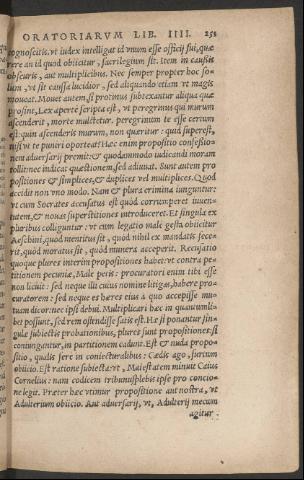 ORATORIARVM LIB. IIII. 251
cognoscitis, vt iudex intelligat id vnum esse officij sui, quæ
rere an id quod obiicitur, sacrilegium sit. Item in causis
obscuris, aut multiplicibus. Nec semper propter hoc so-
lum, vt sit caussa lucidior, sed aliquando etiam vt magis
moueat. Mouet autem, si protinus subtexantur aliqua quæ
prosint, Lex aperte scripta est, vt peregrinus qui murum
ascenderit, morte mulctetur. peregrinum te esse certum
est: quin ascenderis murum, non quæritur: quid superest,
nisi vt te puniri oporteat? Hæc enim propositio confessio-
nem aduersarij premit: & quodammodo iudicandi moram
tollit: nec indicat quæstionem, sed adiuuat. Sunt autem pro
positiones & simplices, & duplices vel multiplices. Quod
accidit non vno modo. Nam & plura crimina iunguntur:
vt cum Socrates accusatus est quòd corrumperet iuuen-
tutem, & nouas superstitiones introduceret. Et singula ex
pluribus colliguntur: vt cum legatio male gesta obiicitur
Aeschini, quòd mentitus sit, quòd nihil ex mandatis fece-
rit, quòd moratus sit, quòd munera acceperit. Recusatio
quoque plures interim propositiones habet: vt contra pe-
titionem pecuniæ, Male petis: procuratori enim tibi esse
non licuit: sed neque illi cuius nomine litigas, habere pro-
curatorem: sed neque es hæres eius à quo accepisse mu-
tuum dicor: nec ipsi debui. Multiplicari hæc in quantum li-
bet possunt, sed rem ostendisse satis est. Hæ si ponantur sin-
gulæ subiectis probationibus, plures sunt propositiones: si
coniungantur, in partitionem cadunt. Est & nuda propo-
sitio, qualis fere in coniecturalibus: Cædis ago, furtum
obiicio. Est ratione subiecta: vt, Maiestatem minuit Caius
Cornelius: nam codicem tribunus plebis ipse pro concio-
ne legit. Præter hæc vtimur propositione aut nostra, vt
Adulterium obiicio. Aut aduersarij, vt, Adulterij mecum
agitur